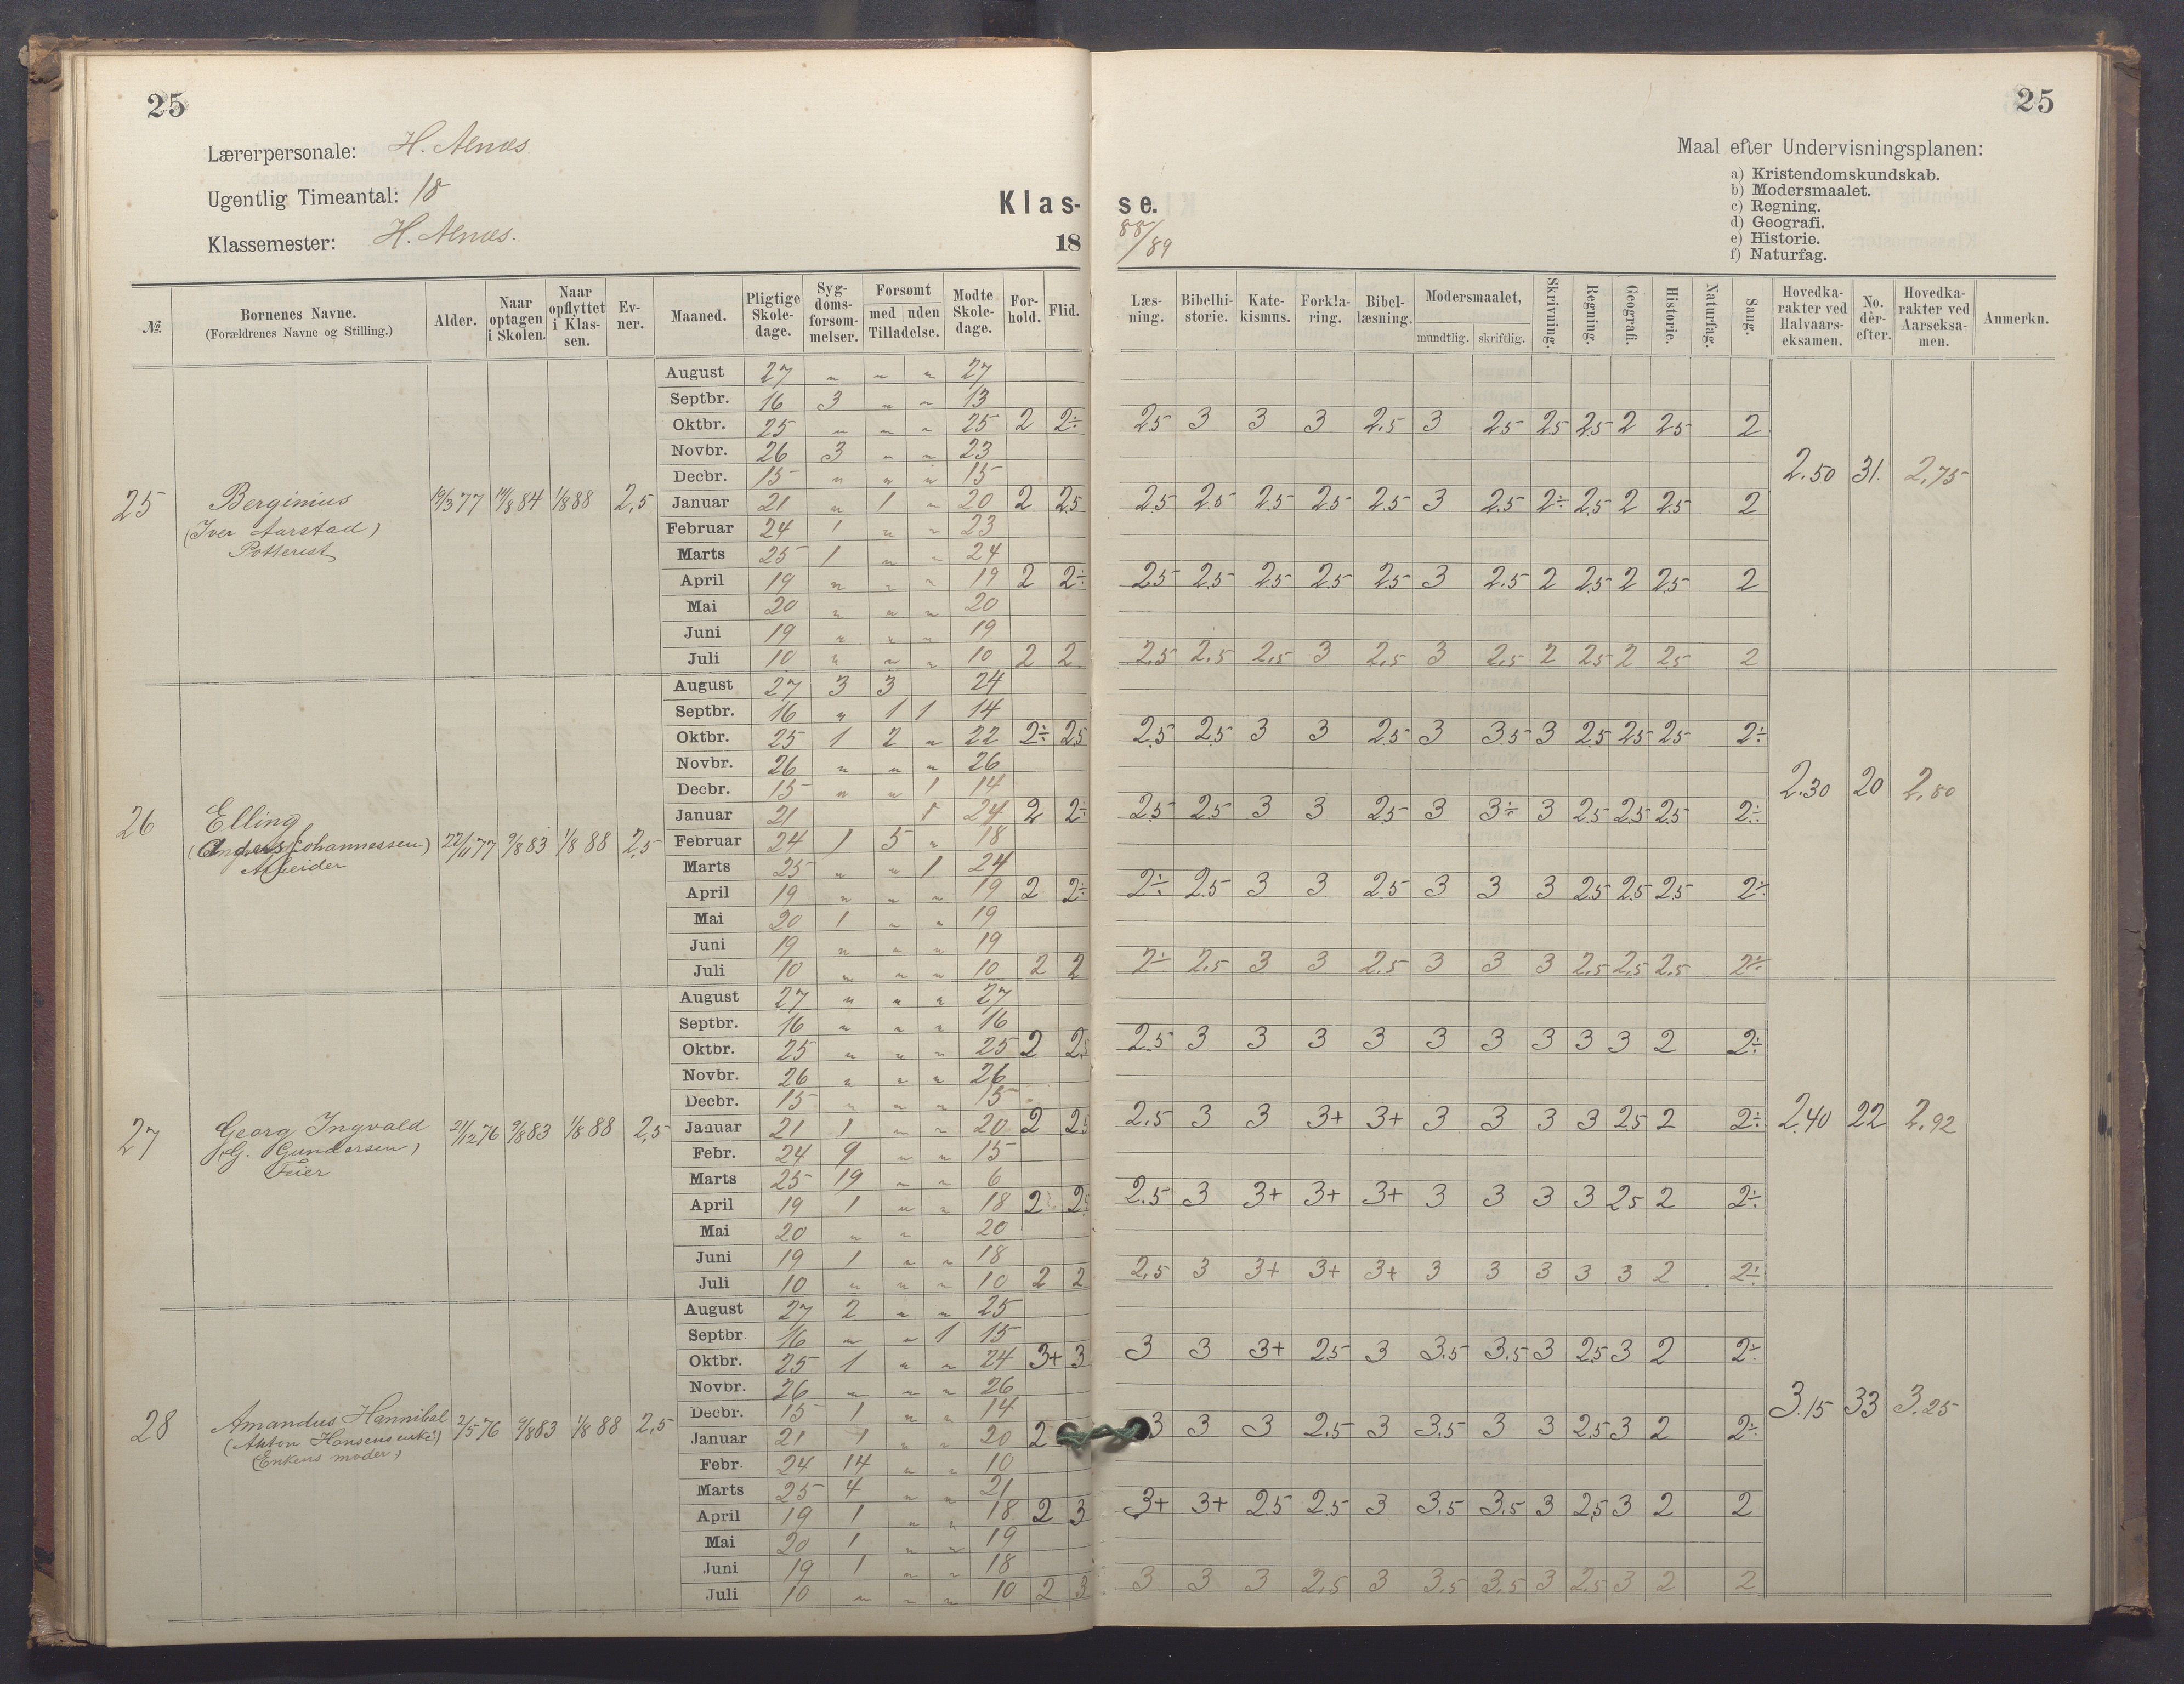 25
25
Lærerpersonale: H. Alnæs.
Ugentlig Timeantal: 18
Klassemester: H. Alnæs.
Klas-se.
18 88/89
Maal efter Undervisningsplanen:
a) Kristendomskundskab.
b) Modersmaalet.
c) Regning.
d) Geografi.
e) Historie.
f) Naturfag.
№. | Bornenes Navne. (Forældrenes Navne og Stilling.) | Alder. | Naar optagen i Skolen. | Naar opflyttet i Klassen. | Evner. | Maaned. | Pligtige Skoledage. | Sygdomsforsommelser. | Forsomt med uden Tilladelse. | Modte Skoledage. | Forhold. | Flid. | Læsning. | Bibelhistorie. | Katekismus. | Forklaring. | Bibellæsning. | Modersmaalet, mundtlig. skriftlig. | Skrivning. | Regning. | Geografi. | Historie. | Naturfag. | Sang. | Hovedkarakter ved Halvaarseksamen. | No. dérefter. | Hovedkarakter ved Aarseksamen. | Anmerkn.
25 Berginius (Iver Aarstad) 19/3 77 14/8 84 1/8 88 2,5
August 27 " " " 27
Septbr. 16 3 " " 13
Oktbr. 25 " " " 25 2 2÷ 2.5 3 3 3 2.5 3 2.5 2.5 2.5 2 2.5 2
Novbr. 26 3 " " 23
Decbr. 15 " " " 15
Januar 21 " 1 " 20 2 2.5 2.5 2.5 2.5 2.5 2.5 3 2.5 2÷ 2.5 2 2.5 2
Februar 24 1 " " 23
Marts 25 1 " " 24
April 19 " " " 19 2 2÷ 2.5 2.5 2.5 2.5 2.5 3 2.5 2 2.5 2 2.5 2
Mai 20 " " " 20
Juni 19 " " " 19
Juli 10 " " " 10 2 2 2.5 2.5 2.5 3 2.5 3 2.5 2 2.5 2 2.5 2
2.50 31. 2,75
26 Elling (Anders Johannessen) Arbeider 22/11 77 9/8 83 1/8 88 2,5
August 27 3 3 24
Septbr. 16 " 1 1 14
Oktbr. 25 1 2 " 22 2÷ 2.5 2.5 2.5 3 3 2.5 3 3.5 3 2.5 2.5 2.5 2÷
Novbr. 26 " " " 26
Decbr. 15 " " 1 14
Januar 21 1 24 2 2÷ 2.5 2.5 3 3 2.5 3 3÷ 3 2.5 2.5 2.5 2÷
Februar 24 1 5 " 18
Marts 25 " " 1 24
April 19 " " " 19 2 2÷ 2÷ 2.5 3 3 2.5 3 3 3 2.5 2.5 2.5 2÷
Mai 20 1 " " 19
Juni 19 " " " 19
Juli 10 " " " 10 2 2 2÷ 2.5 3 3 2.5 3 3 3 2.5 2.5 2.5 2÷
2.30 20 2,80
27 Georg Ingvald (G. Gundersen) Feier 21/12 76 9/8 83 1/8 88 2,5
August 27 " " " 27
Septbr. 16 " " " 16
Oktbr. 25 " " " 25 2 2.5 2.5 3 3 3 3 3 3 3 3 3 2 2÷
Novbr. 26 " " " 26
Decbr. 15 " " " 15
Januar 21 1 " " 20 2 2.5 2.5 3 3 3+ 3+ 3 3 3 3 2.5 2 2÷
Febr. 24 9 " " 15
Marts 25 19 " " 6
April 19 1 " " 18 2 2.5 2.5 3 3+ 3+ 3+ 3 3 3 3 2.5 2 2÷
Mai 20 " " 20
Juni 19 1 " " 18
Juli 10 " " " 10 2 2 2.5 3 3+ 3+ 3+ 3 3 3 3 3 2 2÷
2.40 22 2,92
28 Amandus Hannibal (Anton Hansens enke) (Enkens moder) 2/5 76 9/8 83 1/8 88 2,5
August 27 2 " " 25
Septbr 16 " " 1 15
Oktbr. 25 1 " " 24 3+ 3 3 3 3+ 2.5 3 3.5 3.5 3 2.5 3 2 2÷
Novbr. 26 " " " 26
Decbr. 15 1 " " 14
Januar 21 1 " " 20 2 3 3 3 2.5 3 3.5 3 3 2.5 3 2 2÷
Febr. 24 14 " " 10
Marts 25 4 " " 21
April 19 1 " " 18 2 3 3+ 3+ 2.5 2.5 3 3.5 3.5 3 2.5 3 2 2
Mai 20 1 " " 19
Juni 19 1 " " 18
Juli 10 " " " 10 2 3 3 3 3 2.5 3 3.5 3.5 3 2.5 3 2 2
3.15 33 3.25